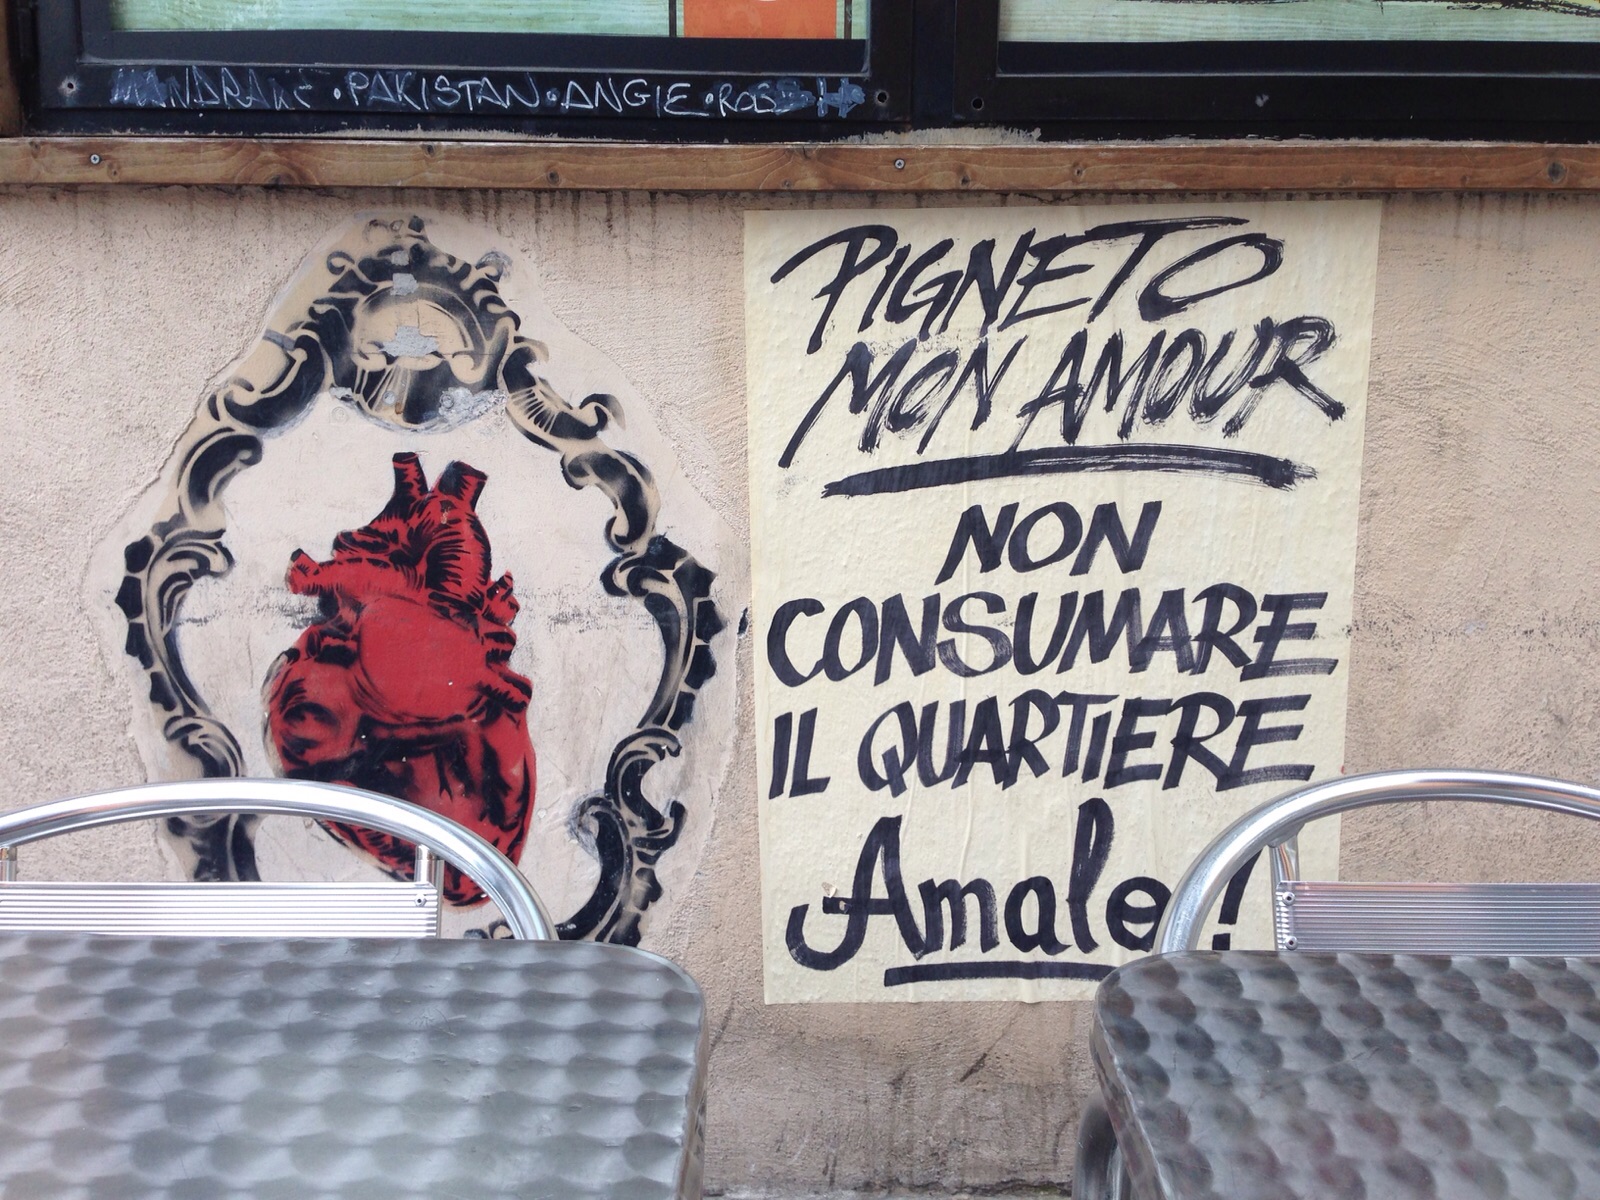 PAKISTAN • ANGIE •
PIGNETO
MON AMOUR
NON
CONSUMARE
IL QUARTIERE
Amalo!